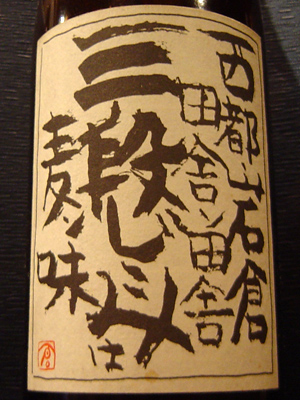 西都山石倉
田舎ノ田舎
三段じこみは
麦ノ味